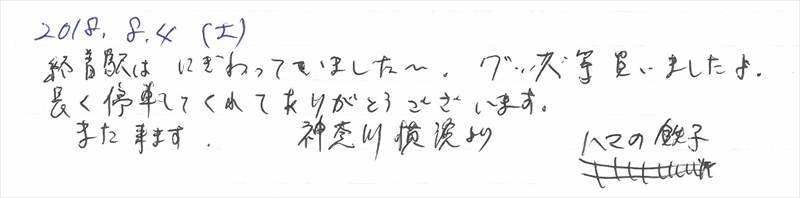 2018. 8.4 (土)
終着駅は にぎわっていましたへ. グッズ等買いましたよ.
長く停車してくれてありがとうございます。
また来ます. 神奈川横浜より ハマの鉄子